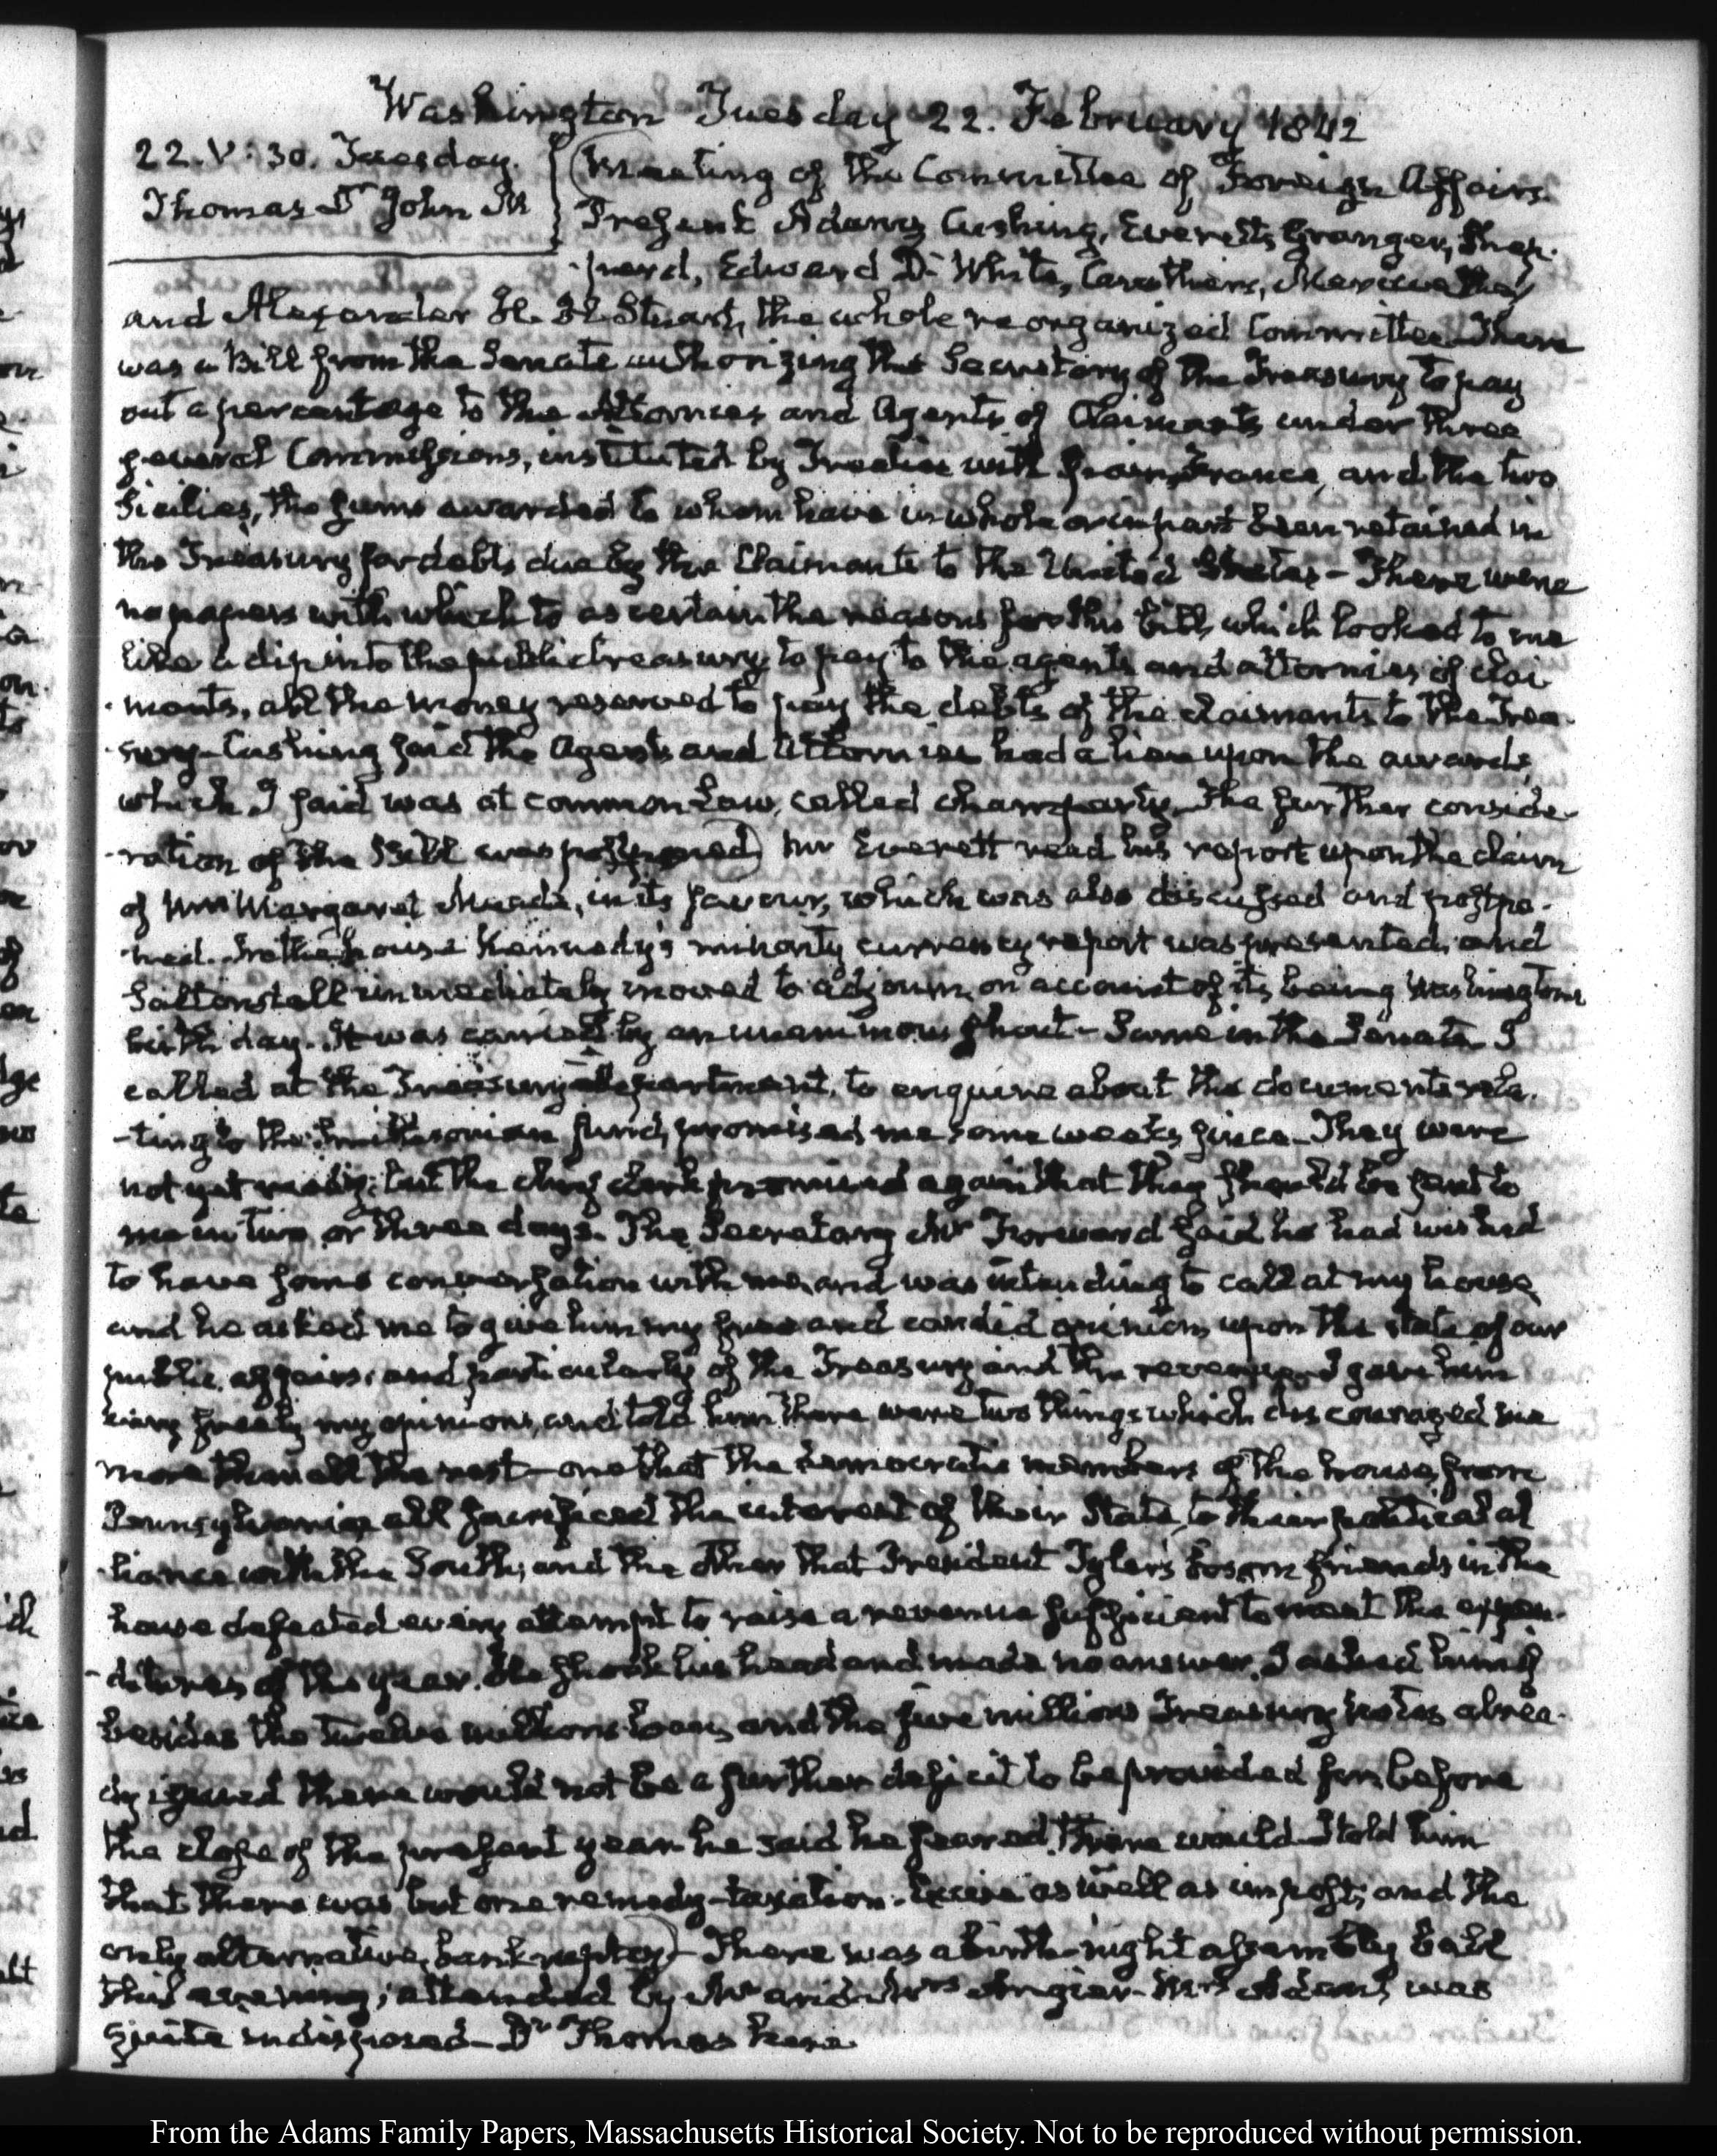 Washington Tuesday 22. February 1842
22. V: 30. Tuesday.
Thomas Dr John M
Meeting of the Committee of Foreign Affairs.
Present Adams, Cushing, Everett, Granger, Shep-
-perd, Edward D. White, Caruthers, Meriwether
and Alexander H. H. Stuart, the whole reorganized Committee. There
was a Bill from the Senate authorizing the Secretary of the Treasury to pay
out a percentage to the Attornies and Agents of Claimants under three
several Commissions, instituted by Treaties with Spain, France, and the two
Sicilies, the sums awarded to whom have in whole or in part been retained in
the Treasury for debts due by the Claimants to the United States - There were
no papers with which to ascertain the reasons for this bill, which looked to me
like a dip into the public treasury, to pay to the agents and attornies of clai
-mants, all the money reserved to pay the debts of the claimants to the Trea-
-sury - Cushing said the Agents and Attornies had a lien upon the awards,
which I said was at common Law, called champarty. The further conside-
-ration of the Bill was postponed) Mr Everett read his report upon the claim
of Mrs Margaret Meade, in its favour, which was also discussed and postpo-
-ned. In the house Kennedy's minority currency report was presented, and
Saltonstall immediately moved to adjourn, on account of its being Washington's
birth day. It was carried by an unanimous shout - Same in the Senate. I
called at the Treasury department, to enquire about the documents rela-
-ting to the Smithsonian fund, promised me some weeks since - They were
not yet ready; but the chief clerk promised again that they should be sent to
me in two or three days. The Secretary Mr Forward said he had wished
to have some conversation with me, and was intending to call at my house,
and he asked me to give him my free and candid opinions upon the state of our
public affairs, and particularly of the Treasury and the revenue. I gave him
very freely my opinions, and told him there were two things which discouraged me
more than all the rest - one that the democratic members of the house, from
Pennsylvania all sacrificed the interest of their State, to their political al
-liance with the South; and the other that President Tyler's bosom friends in the
house defeated every attempt to raise a revenue sufficient to meet the expen-
-ditures of the year. He shook his head and made no answer. I asked him if
besides the twelve millions loan, and the five millions Treasury notes alrea-
dy issued there would not be a further deficit to be provided for, before
the close of the present year he said he feared there would - I told him
that there was but one remedy - taxation. Excise as well as impost; and the
only alternative, bankruptcy) - There was a birth-night assembly ball
this evening; attended by Mr and Mrs Angier - Mrs Adams was
quite indisposed - Dr Thomas here
From the Adams Family Papers, Massachusetts Historical Society. Not to be reproduced without permission.